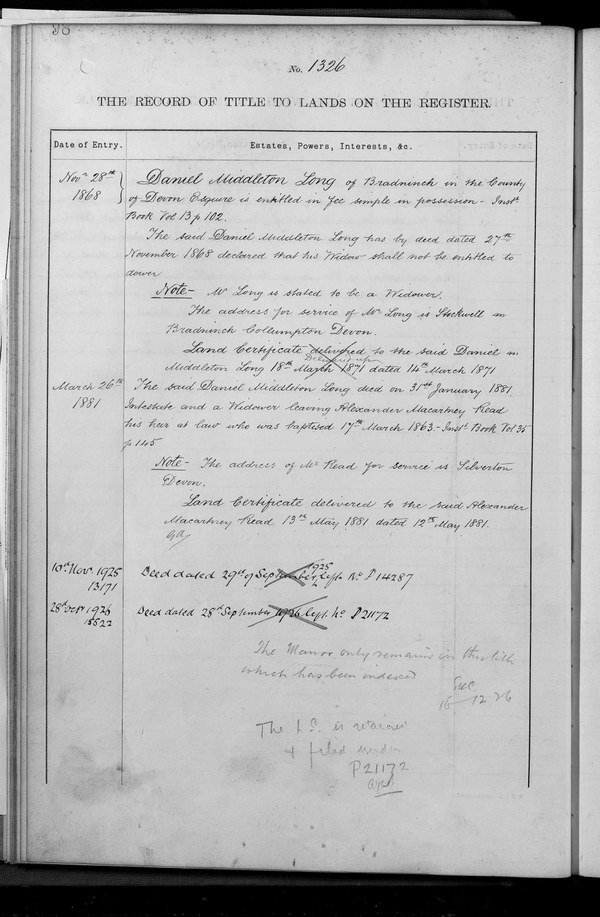 98
No. 1326
THE RECORD OF TITLE TO LANDS ON THE REGISTER.
Date of Entry.
Estates, Powers, Interests, &c.
Novr 28th
1868
Daniel Middleton Long of Bradninch in the County
of Devon Esquire is entitled in fee simple in possession - Instt
Book Vol 13 p 102.
The said Daniel Middleton Long has by deed dated 27th
November 1868 declared that his Widow shall not be entitled to
dower
Note - Mr Long is stated to be a Widower.
The address for service of Mr Long is Stockwell in
Bradninch Collumpton Devon.
Land Certificate delivered to the said Daniel
Delivered up
Middleton Long 18th March 1871 dated 14th March 1871
March 26th
1881
The said Daniel Middleton Long died on 31st January 1881
Intestate and a Widower leaving Alexander Macartney Read
his heir at law who was baptised 17th March 1863 - Instt Book Vol 35
p 145
Note - The address of Mr Read for service is Silverton
Devon.
Land Certificate delivered to the said Alexander
Macartney Read 13th May 1881 dated 12th May 1881.
10th Nov. 1925
13171
Deed dated 29th of September 1925 Cept. No. P14287
28th Octr 1926
18522
Deed dated 28th September 1926 Cept. No. P21172
The Manor only remains in this title
which has been indexed
16 12 26
The L.C. is
& filed under
P21172